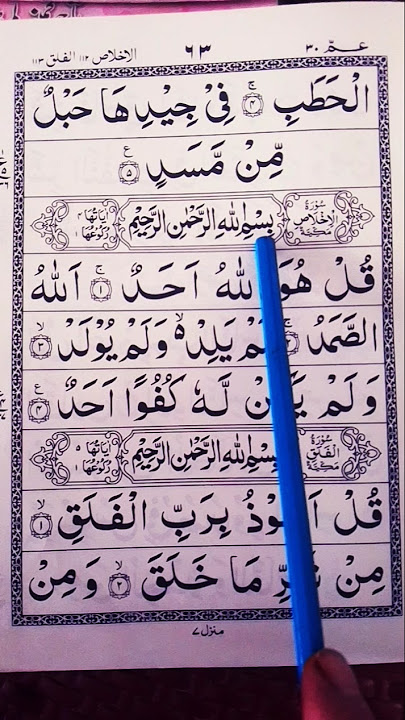 عمّ ٣٠ ٦٣ الاخلاص ١١٢ الفلق ١١٣
الْحَطَبِ ۚ﴿٤﴾ فِىْ جِيْدِهَا حَبْلٌ
مِّنْ مَّسَدٍ ﴿٥﴾ ع
سُوْرَةُ الْاِخْلَاصِ مَكِّيَّةٌ بِسْمِ اللّٰهِ الرَّحْمٰنِ الرَّحِيْمِ اٰيَاتُهَا ٤ رُكُوْعُهَا ١
قُلْ هُوَ اللّٰهُ اَحَدٌ ۚ﴿١﴾ اَللّٰهُ
الصَّمَدُ ۚ﴿٢﴾ لَمْ يَلِدْ ۙ وَلَمْ يُوْلَدْ ۙ﴿٣﴾
وَلَمْ لَّهٗ كُفُوًا اَحَدٌ ﴿٤﴾ ع
سُوْرَةُ الْفَلَقِ مَكِّيَّةٌ بِسْمِ اللّٰهِ الرَّحْمٰنِ الرَّحِيْمِ اٰيَاتُهَا ٥ رُكُوْعُهَا ١
قُلْ بِرَبِّ الْفَلَقِ ۙ﴿١﴾
مِنْ شَرِّ مَا خَلَقَ ۙ﴿٢﴾ وَمِنْ
منزل ٧